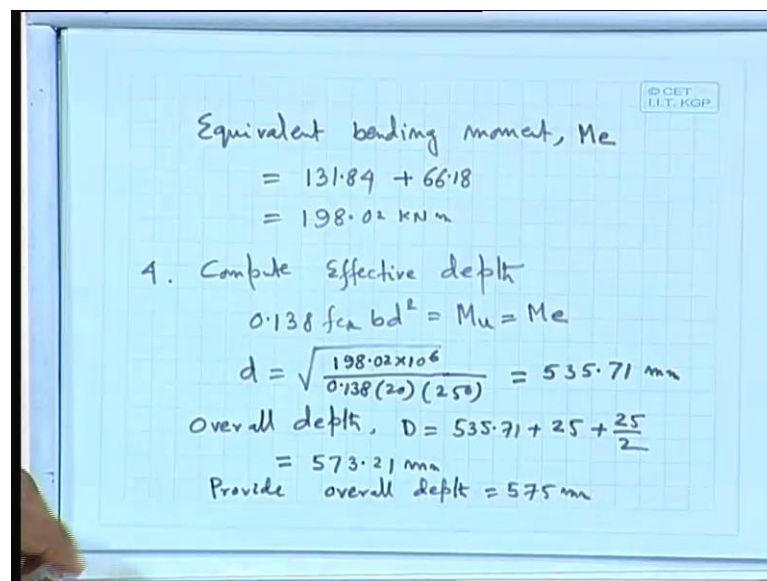 © CET
I.I.T. KGP
Equivalent bending moment, Me
= 131.84 + 66.18
= 198.02 KN m
4. Compute Effective depth
0.138 fck bd² = Mu = Me
d = √(198.02×10⁶ / 0.138(20)(250)) = 535.71 mm
Overall depth, D = 535.71 + 25 + 25/2
= 573.21 mm
Provide overall depth = 575 mm